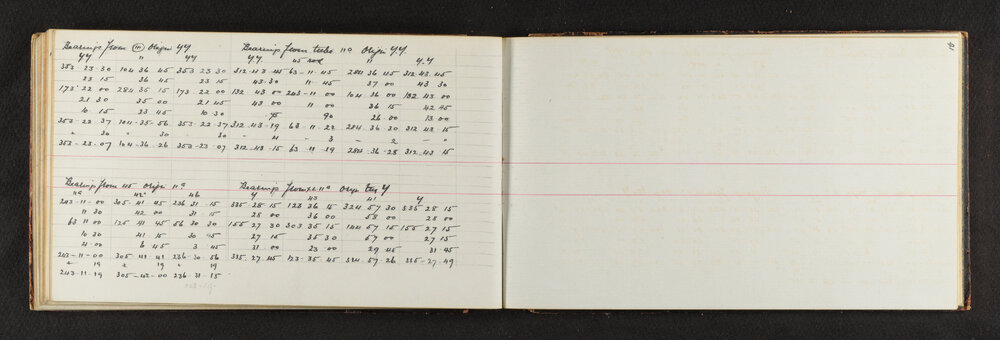 Bearings from Object YY
Bearings from Object YY
YY " YY
YY 45 rod " Y.Y
353-23-30 104 36 45 353 23 30 312-43-45 63-11-45 284 36 45 312-43-45
23 15 36 45 23 15 43-30 11-45 37 00 43 30
173 22 00 284 35 15 173-22 00 132 43 00 243-11-00 104 36 00 132 43 00
21 30 35 00 21 45 43 00 11 00 36 15 42 45
10 15 10 30 90 26 00 13 00
353-22 37 104-35-56 353-22-37 312-43-19 63-11-22 284 36 30 312 43 15
" 30 " 30 30 " 4 - 3 - 2 - "
353-23-07 104-36-26 353-23-07 312-43-15 63-11-19 284-36-28 312-43 15
Bearings from 45 Object 11a
Bearings from Object Y
11a 42a 46
Y 43 41 Y
243-11-00 305-41 45 236 31 15 335-28 15 123 36 15 324 57 30 335 28 15
11 30 42 00 31-15 28 00 36 00 58 00 28 00
63 11 00 125 41 45 56 30 30 155 27 30 303 35 15 144 57 15 155 27 15
10 30 41 15 30 45 27 15 35 30 57 00 27 15
4 00 6 45 3 45 31 00 23 00 29 45 31 45
243-11-00 305-41 41 236-30-56 335-27-45 123-35-45 324-57-26 335-27-49
" 19 " 19 " 19
243-11-19 305-42-00 236 31-15